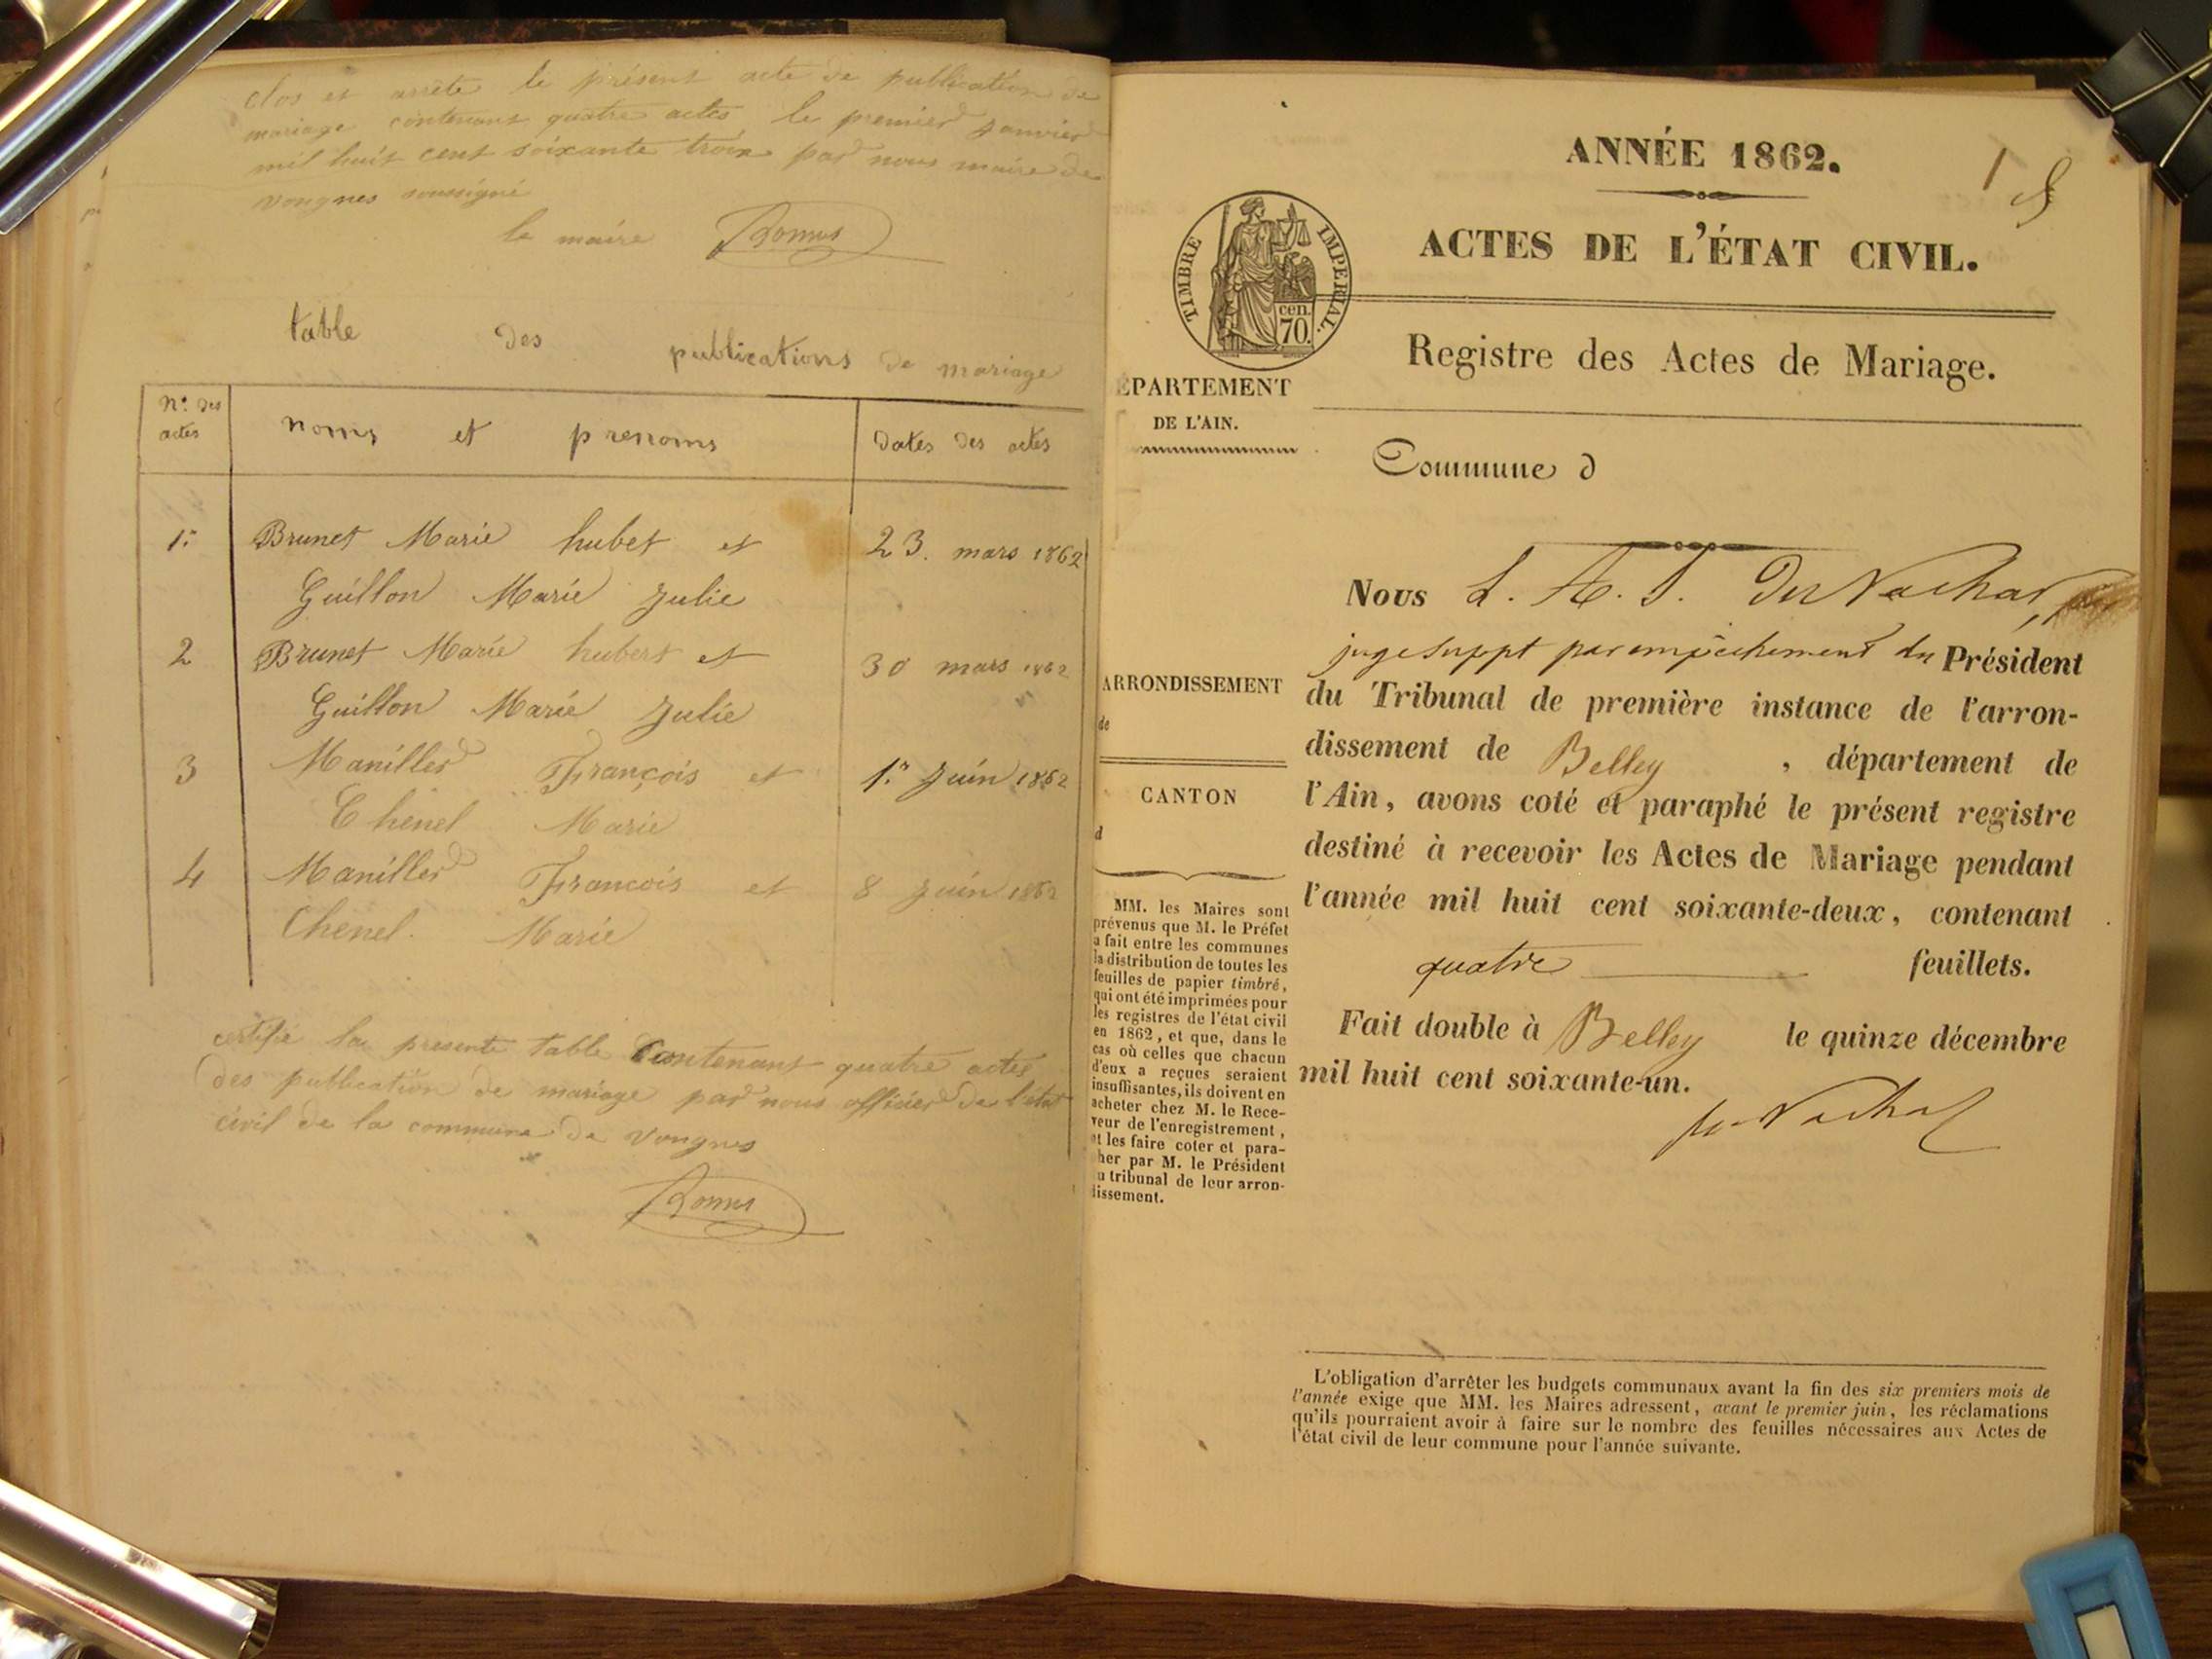 clos et arrêté le présent acte de publication de
mariage contenant quatre actes le premier janvier
mil huit cent soixante trois par nous maire de
vongnes soussigné
le maire
table des publications de mariage
No. des actes
noms et prenoms
dates des actes
1.er
Brunet Marie hubet et
23. mars 1862
Guillon Marie Julie
2
Brunet Marie hubert et
30 mars 1862
Guillon Marie Julie
3
Manillier François et
1.er Juin 1862
Chenel Marie
4
Manillier Francois et
8 Juin 1862
Chenel. Marie
certifie la presente table Contenant quatre actes
des publication de mariage par nous officier de l'état
civil de la commune de vongnes
1
ANNÉE 1862.
ACTES DE L'ÉTAT CIVIL.
TIMBRE IMPERIAL.
cen.
70.
Registre des Actes de Mariage.
ÉPARTEMENT
DE L'AIN.
Commune d
Nous L. A. J.
juge suppt par empêchement du Président
du Tribunal de première instance de l'arron-
dissement de Belley , département de
l'Ain, avons coté et paraphé le présent registre
destiné à recevoir les Actes de Mariage pendant
l'année mil huit cent soixante-deux, contenant
quatre feuillets.
Fait double à Belley le quinze décembre
mil huit cent soixante-un.
ARRONDISSEMENT
de
CANTON
d
MM. les Maires sont
prévenus que M. le Préfet
a fait entre les communes
la distribution de toutes les
feuilles de papier timbré,
qui ont été imprimées pour
les registres de l'état civil
en 1862, et que, dans le
cas où celles que chacun
d'eux a reçues seraient
insuffisantes, ils doivent en
acheter chez M. le Rece-
veur de l'enregistrement,
et les faire coter et para-
her par M. le Président
u tribunal de leur arron-
dissement.
L'obligation d'arrêter les budgets communaux avant la fin des six premiers mois de
l'année exige que MM. les Maires adressent, avant le premier juin, les réclamations
qu'ils pourraient avoir à faire sur le nombre des feuilles nécessaires aux Actes de
l'état civil de leur commune pour l'année suivante.